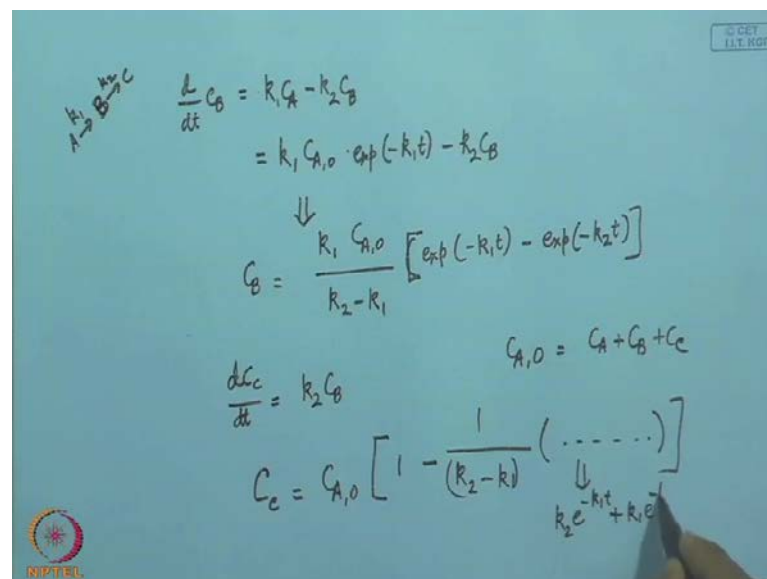 © CET
I.I.T. KGP
A →k₁ B →k₂ C
d/dt C_B = k₁C_A − k₂C_B
= k₁ C_A,0 · exp(−k₁t) − k₂C_B
⇓
C_B = k₁ C_A,0 / (k₂ − k₁) [exp(−k₁t) − exp(−k₂t)]
C_A,0 = C_A + C_B + C_C
dC_C/dt = k₂ C_B
C_C = C_A,0 [1 − 1/(k₂ − k₁) (......)]
⇓
k₂e^−k₁t + k₁e^−
NPTEL